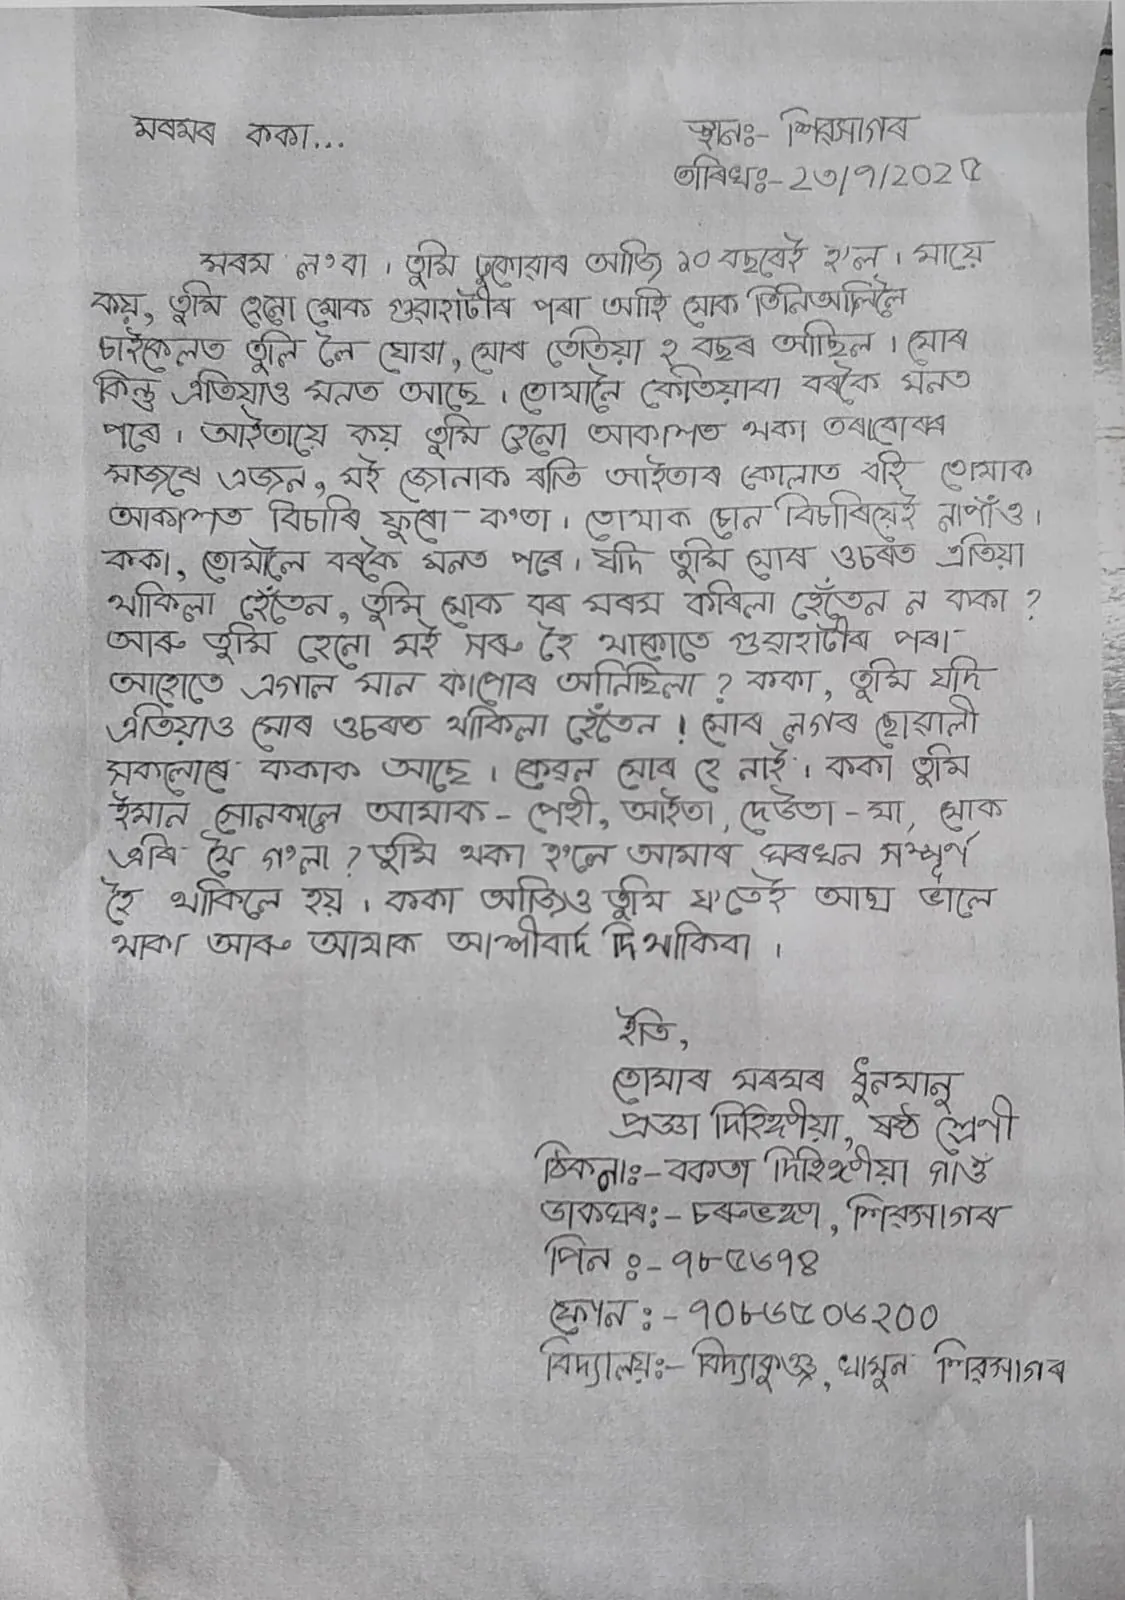 মৰমৰ ককা...
স্থানঃ- শিৱসাগৰ
তাৰিখঃ- ২৩/৭/২০২৫
মৰম ল'বা । তুমি ঢুকোৱাৰ আজি ১০ বছৰেই হ'ল । মায়ে
কয়, তুমি হেনো মোক গুৱাহাটীৰ পৰা আহি মোক তিনিআলিলৈ
চাইকেলত তুলি লৈ যোৱা, মোৰ তেতিয়া ২ বছৰ আছিল । মোৰ
কিন্তু এতিয়াও মনত আছে । তোমালৈ কেতিয়াবা বৰকৈ মনত
পৰে । আইতায়ে কয় তুমি হেনো আকাশত থকা তৰাবোৰৰ
মাজৰে এজন, মই জোনাক ৰাতি আইতাৰ কোলাত বহি তোমাক
আকাশত বিচাৰি ফুৰো ক'তা । তোমাক চোন বিচাৰিয়েই নাপাঁও ।
ককা, তোমালৈ বৰকৈ মনত পৰে । যদি তুমি মোৰ ওচৰত এতিয়া
থাকিলা হেঁতেন, তুমি মোক বৰ মৰম কৰিলা হেঁতেন ন ককা ?
আৰু তুমি হেনো মই সৰু হৈ থাকোতে গুৱাহাটীৰ পৰা
আহোতে এগাল মান কাপোৰ আনিছিলা ? ককা, তুমি যদি
এতিয়াও মোৰ ওচৰত থাকিলা হেঁতেন ! মোৰ লগৰ ছোৱালী
সকলোৰে ককাক আছে । কেৱল মোৰ হে নাই । ককা তুমি
ইমান সোনকালে আমাক - পেহী, আইতা, দেউতা - মা, মোক
এৰি থৈ গ'লা ? তুমি থকা হ'লে আমাৰ ঘৰখন সম্পূৰ্ণ
হৈ থাকিলে হয় । ককা আজিও তুমি য'তেই আছা ভালে
থাকা আৰু আমাক আশীৰ্বাদ দি থাকিবা ।
ইতি,
তোমাৰ মৰমৰ ধুনমানু
প্ৰজ্ঞা দিহিঙ্গীয়া, ষষ্ঠ শ্ৰেণী
ঠিকনাঃ- বকতা দিহিঙ্গীয়া গাওঁ
ডাকঘৰঃ- চৰুভঙ্গা, শিৱসাগৰ
পিন ঃ- ৭৮৫৬৭৪
ফোন ঃ- ৭০৮৬৫০৬২০০
বিদ্যালয়ঃ- বিদ্যাকুঞ্জ, শিৱসাগৰ